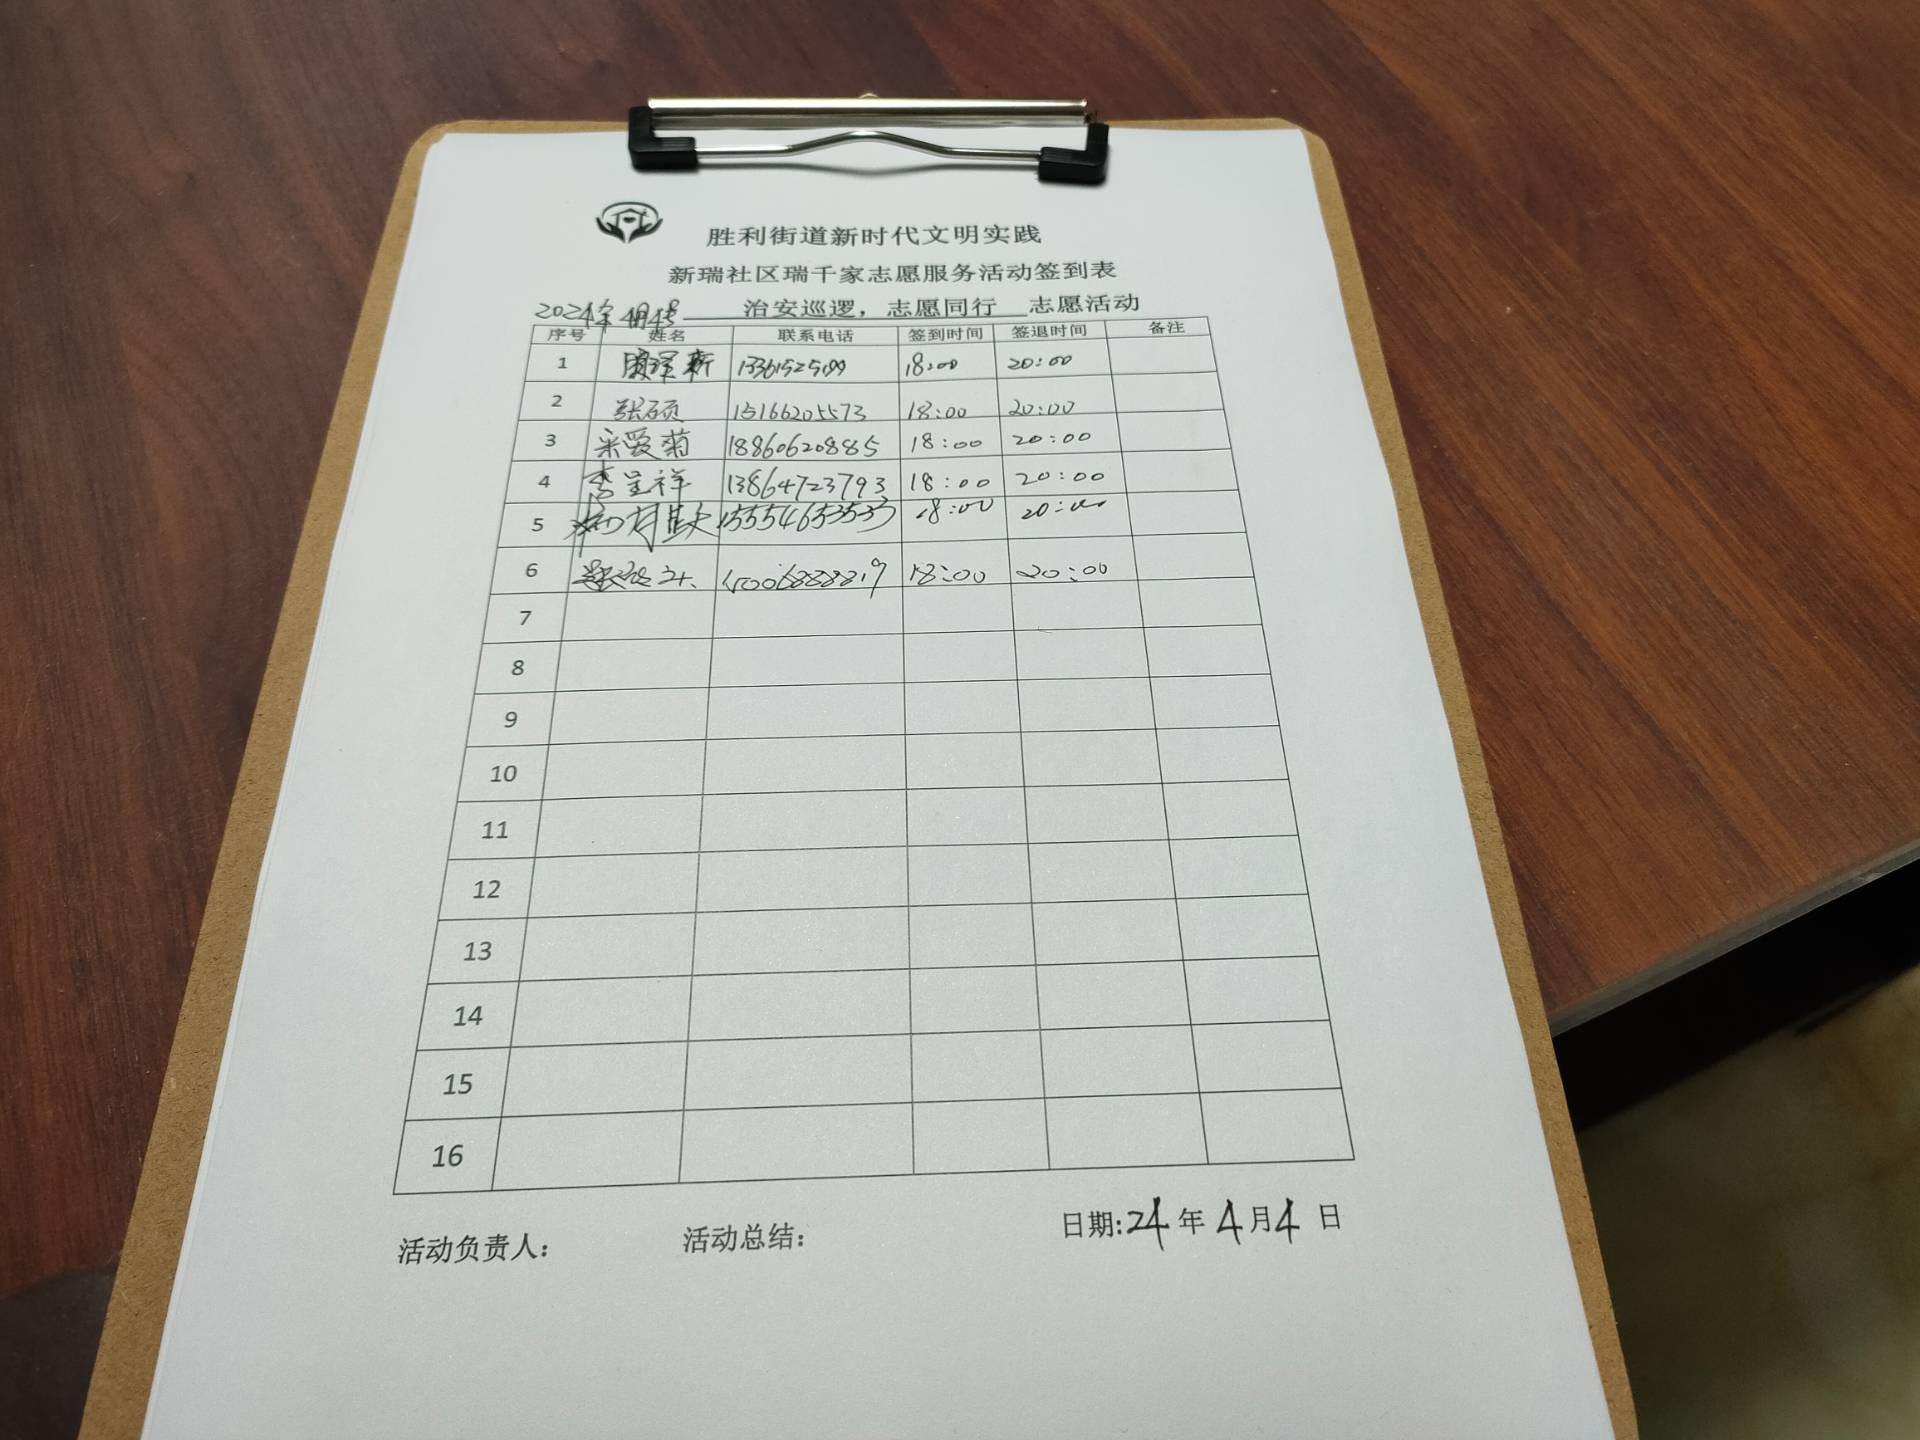 胜利街道新时代文明实践
新瑞社区瑞千家志愿服务活动签到表
2024年4月4号 治安巡逻，志愿同行 志愿活动
序号 姓名 联系电话 签到时间 签退时间 备注
1 18:00 20:00
2 张硕 15166205573 18:00 20:00
3 宋爱菊 18860620885 18:00 20:00
4 李呈祥 13864723793 18:00 20:00
5 15554653533 18:00 20:00
6 18:00 20:00
7
8
9
10
11
12
13
14
15
16
活动负责人： 活动总结： 日期:24年4月4日